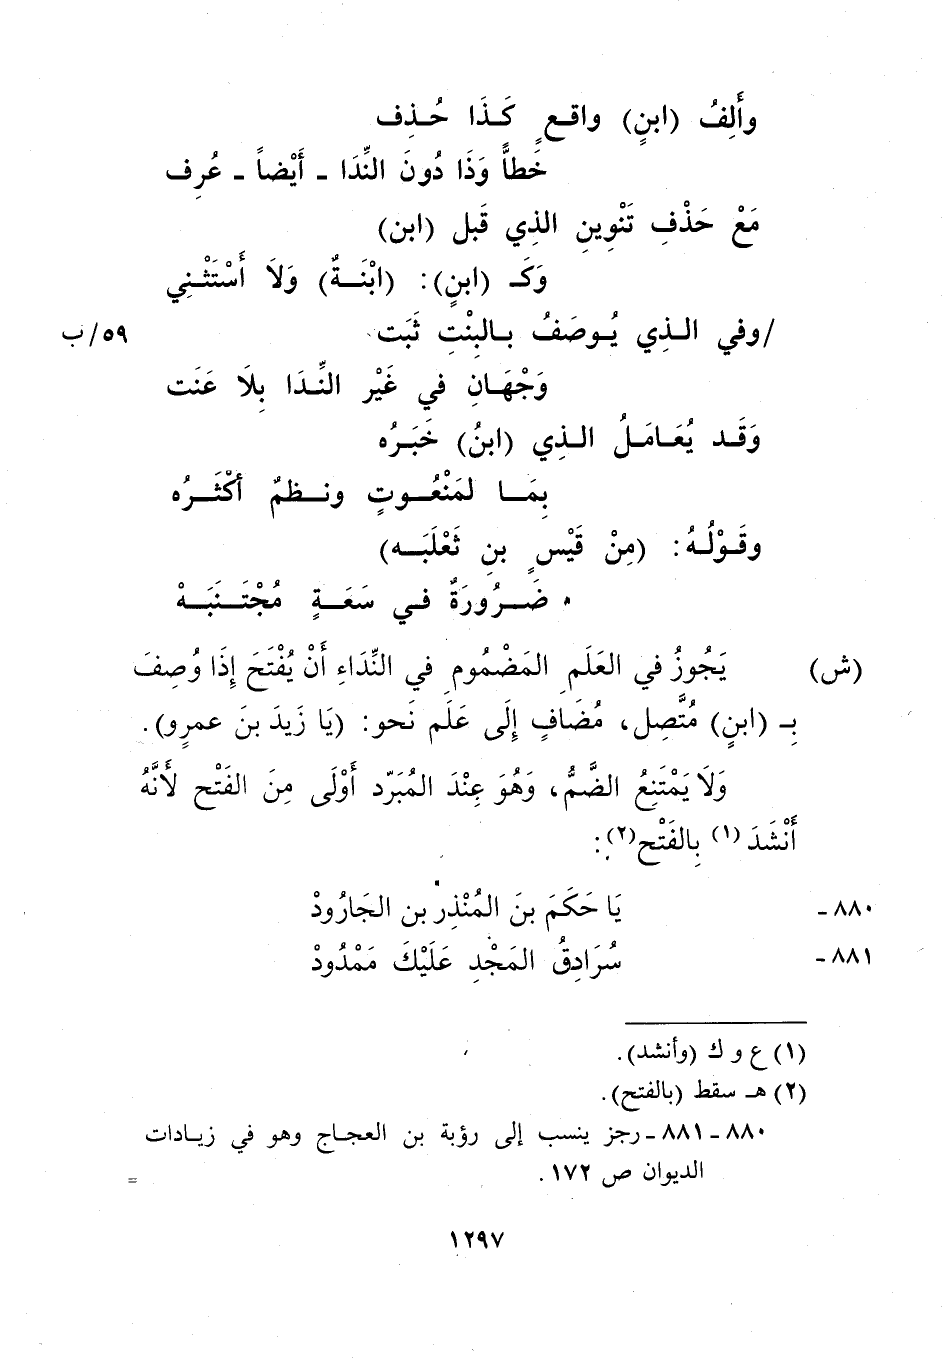 وأَلِفُ (ابنٍ) واقعٍ كَذَا حُذِف
خَطاًّ وَذَا دُونَ النِّدَا - أَيْضاً - عُرِف
مَعْ حَذْفِ تَنْوِينِ الذِي قَبل (ابن)
وَكَـ (ابنٍ): (ابْنَةٌ) وَلاَ أَسْتَثْنِي
/وفي الذِي يُوصَفُ بالبِنْتِ ثَبَت ٥٩/ب
وَجْهَانِ في غَيْر النِّدَا بِلاَ عَنَت
وَقَد يُعَامَلُ الذِي (ابنُ) خَبَرُه
بِمَا لمَنْعُوتٍ ونظمٌ أكْثَرُه
وقَوْلُهُ: (مِنْ قَيْسٍ بنِ ثَعْلَبَه)
ضَرُورَةٌ في سَعَةٍ مُجْتَنَبَهْ
(ش) يَجُوزُ في العَلَمِ المَضْمُومِ في النِّدَاءِ أَنْ يُفْتَحَ إِذَا وُصِفَ
بِـ (ابنٍ) مُتَّصِل، مُضَافٍ إِلَى عَلَم نَحو: (يَا زَيدَ بنَ عمرٍو).
وَلاَ يَمْتَنِعُ الضَّمُّ، وَهُوَ عِنْدَ المُبَرّد أَوْلَى مِنَ الفَتْح لأَنَّهُ
أَنْشَدَ (١) بِالفَتْح(٢):
٨٨٠- يَا حَكَمَ بنَ المُنْذِرِ بن الجَارُودْ
٨٨١- سُرَادِقُ المَجْدِ عَلَيْكَ مَمْدُودْ
(١) ع و ك (وأنشد).
(٢) هـ سقط (بالفتح).
٨٨٠ - ٨٨١ - رجز ينسب إلى رؤبة بن العجاج وهو في زيادات
الديوان ص ١٧٢. =
١٢٩٧